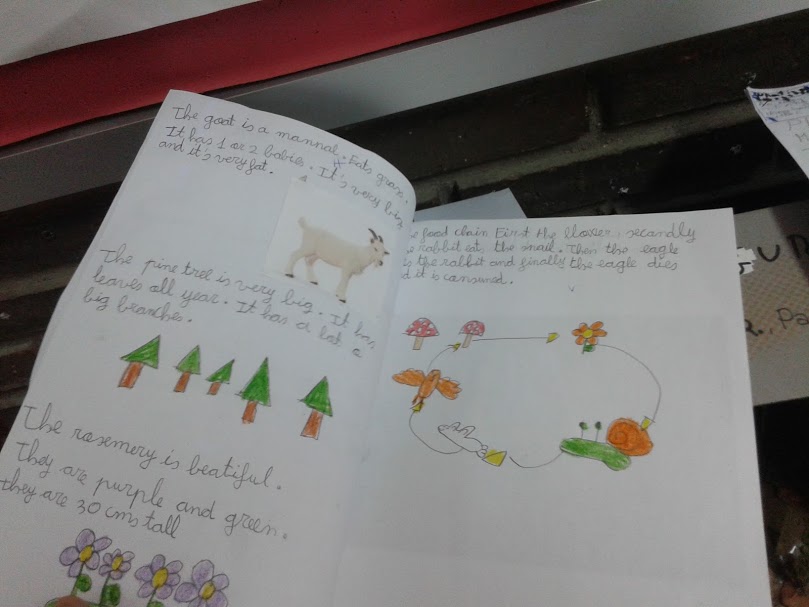 The goat is a mannal. Eats grass.
It has 1 or 2 babies. It's very big
and it's very fat.
The pine tree is very big. It has
leaves all year. It has a lot a
big branches.
The rosemery is beatiful.
They are purple and green.
they are 30 cms tall
food chain First the flower, secandly
rabbit eat, the snail. Then the eagle
the rabbit and finally the eagle dies
it is cansumed.